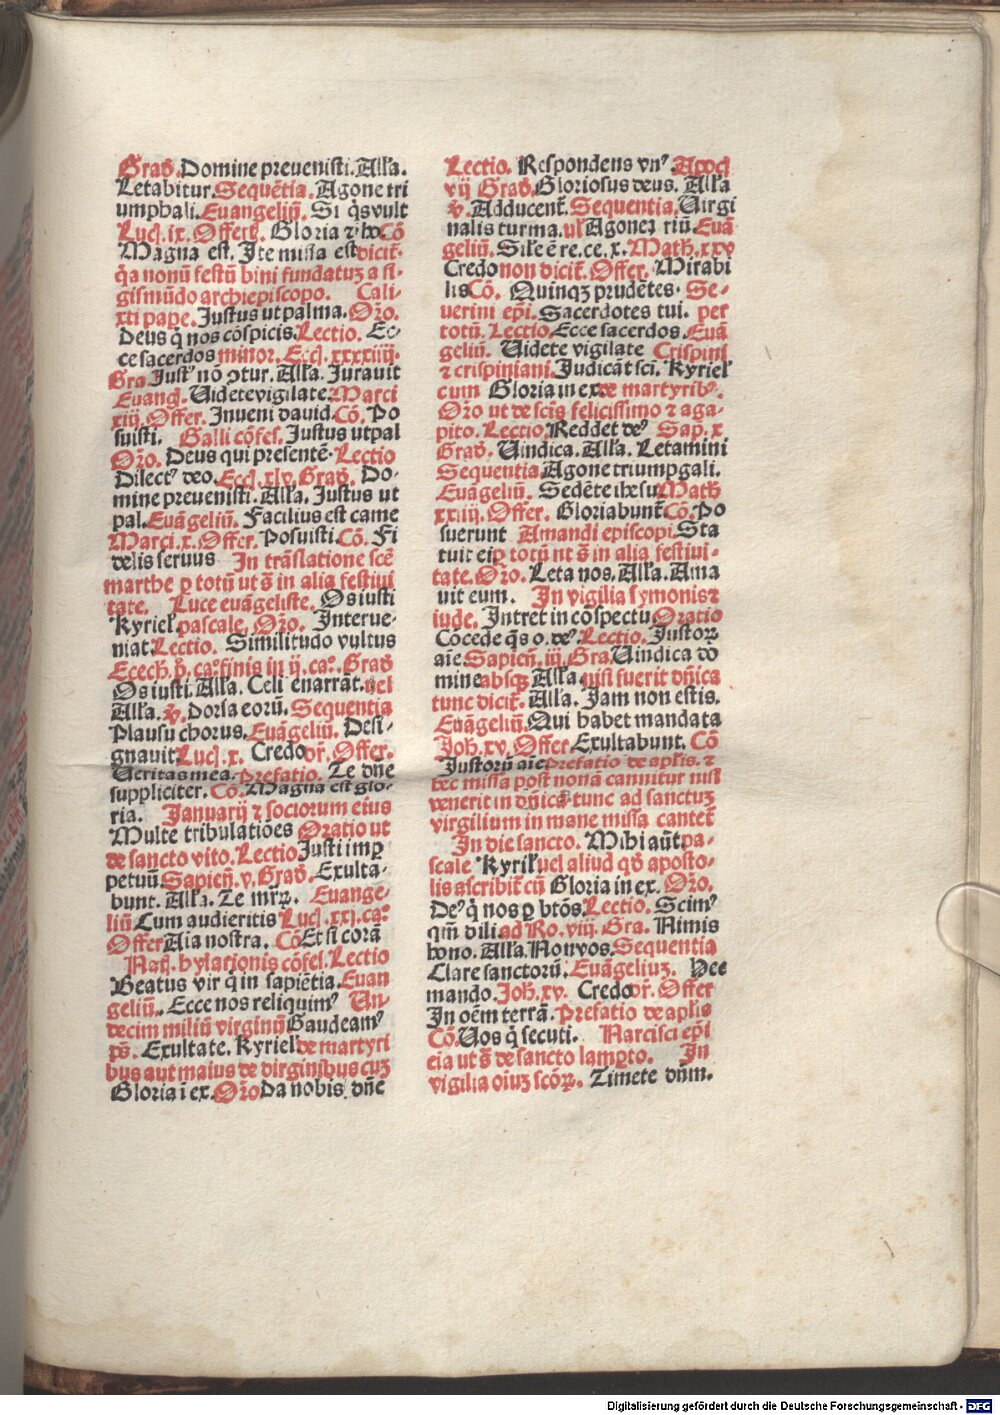 Grad̄. Domine preuenisti. Alľa.
Letabitur. Sequētia. Agone tri
umphali. Euangeliū. Si q̇s vult
Luc̄. ix. Offert̄. Gloria ⁊ ho Cō
Magna est. Ite missa est dicit̄.
q̇a nonū festū bini fundatuꝫ a si-
gismūdo archiepiscopo. Cali-
xti pape. Justus ut palma. Or̄o.
Deus q̇ nos cōspicis. Lectio. Ec-
ce sacerdos minor. Eccl̄. xxxxiiij.
Gra Just⁹ nō ꝯtur. Alľa. Jurauit
Euanḡ. Uidete vigilate. Marci
xiij. Offer. Inueni dauid. Cō. Po
suisti. Galli cōfes. Justus ut pal
Or̄o. Deus qui presentē. Lectio
Dilect⁹ deo. Eccl̄. xlv. Grad̄. Do-
mine preuenisti. Alľa. Justus ut
pal. Euāgeliū. Facilius est came
Marci. x. Offer. Posuisti. Cō. Fi
delis seruus In trāslatione scē
marthe ꝑ totū ut s̄ in alia festiui
tate. Luce euāgeliste. Os iusti
Kyrieľ. pascale. Or̄o. Interue-
niat Lectio. Similitudo vultus
Ecech. p̄. ca.° finis iij ij. ca.° Grad̄
Os iusti. Alľa. Celi enarrāt. uel
Alľa. v̄. Dorsa eorū. Sequentia
Plausu chorus. Euāgeliū. Desi-
gnauit Luc̄. x. Credo or̄. Offer.
Ueritas mea. Prefatio. Te dn̄e
suppliciter. Cō. Magna est glo-
ria. Januarij ⁊ sociorum eius
Multe tribulatiões Oratio ut
de sancto vito. Lectio Justi imꝑ
petuū Sapien̄. v. Grad̄. Exulta-
bunt. Alľa. Te mr̄ꝝ. Euange-
liū Cum audieritis Luc̄. xxj. ca.°
Offer Aīa nostra. Cō Et si corā
Nat̄. hylarionis cōfes. Lectio
Beatus vir q̇ in sapiētia. Euan
geliū. Ecce nos reliquim⁹ Un-
decim miliū virginū Gaudeam⁹
ps̄. Exultate. Kyrieľ de martyri
bus aut maius de virginibus cuꝫ
Gloria ī ex. Or̄o Da nobis dn̄e
Lectio. Respondens vn⁹ Apoc̄
vij Grad̄. Gloriosus deus. Alľa
v̄. Adducent̄. Sequentia. Uirgi
nalis turma. uľ Agonez triū. Euā
geliū. Sil'e ē re. ce. x. Math̄. xxv
Credo non dicit̄. Offer. Mirabi
lis Cō. Quinqꝫ prudētes. Se-
uerini ep̄i. Sacerdotes tui. per
totū. Lectio Ecce sacerdos. Euā
geliū. Uidete vigilate Crispini
⁊ crispiniani. Judicāt sc̄i. Kyrieľ
cum Gloria in ex. de martyrib⁹.
Or̄o ut de scīs felicissimo ⁊ aga-
pito. Lectio. Reddet de⁹ Sap. x
Grad̄. Uindica. Alľa. Letamini
Sequentia Agone triumpgali.
Euāgeliū. Sedēte ihesu Math̄
xxiiij. Offer. Gloriabunt̄ Cō. Po
suerunt Amandi episcopi. Sta
tuit ei ꝑ totū ut s̄ in alia festiui-
tate. Or̄o. Leta nos. Alľa. Ama
uit eum. In vigilia symonis ⁊
iude. Intret in cōspectu Oratio
Cōcede q̄s o. de⁹. Lectio. Justoꝝ
aīe Sapien̄. iij. Gra. Uindica do
mine absqꝫ Alľa. nisi fuerit dn̄ica
tunc dicit̄. Alľa. Jam non estis.
Euāgeliū. Qui habet mandata
Joh̄. xv. Offer Exultabunt. Cō
Justorū aīe prefatio de aplis. ⁊
hec missa post nonā cannitur nisi
venerit in dn̄ica tunc ad sanctuꝫ
virgilium in mane missa cantet̄
In die sancto. Mihi aūt pa-
scale Kyriľ uel aliud qd̄ aposto-
lis ascribit̄ cū Gloria in ex. Or̄o.
De⁹ q̇ nos ꝑ btōs. Lectio. Scim⁹
qm̄ dili ad Ro. viij. Gra. Nimis
hono. Alľa. Non vos. Sequentia
Clare sanctorū. Euāgeliuꝫ. Hec
mando. Joh̄. xv. Credo or̄. Offer
In oēm terrā. Prefatio de aplis
Cō. Uos q̇ secuti. Narcisci ep̄i
eia ut s̄ de sancto lamꝑto. In
vigilia oīuꝫ scōꝝ. Timete dn̄m.
Digitalisierung gefördert durch die Deutsche Forschungsgemeinschaft - DFG